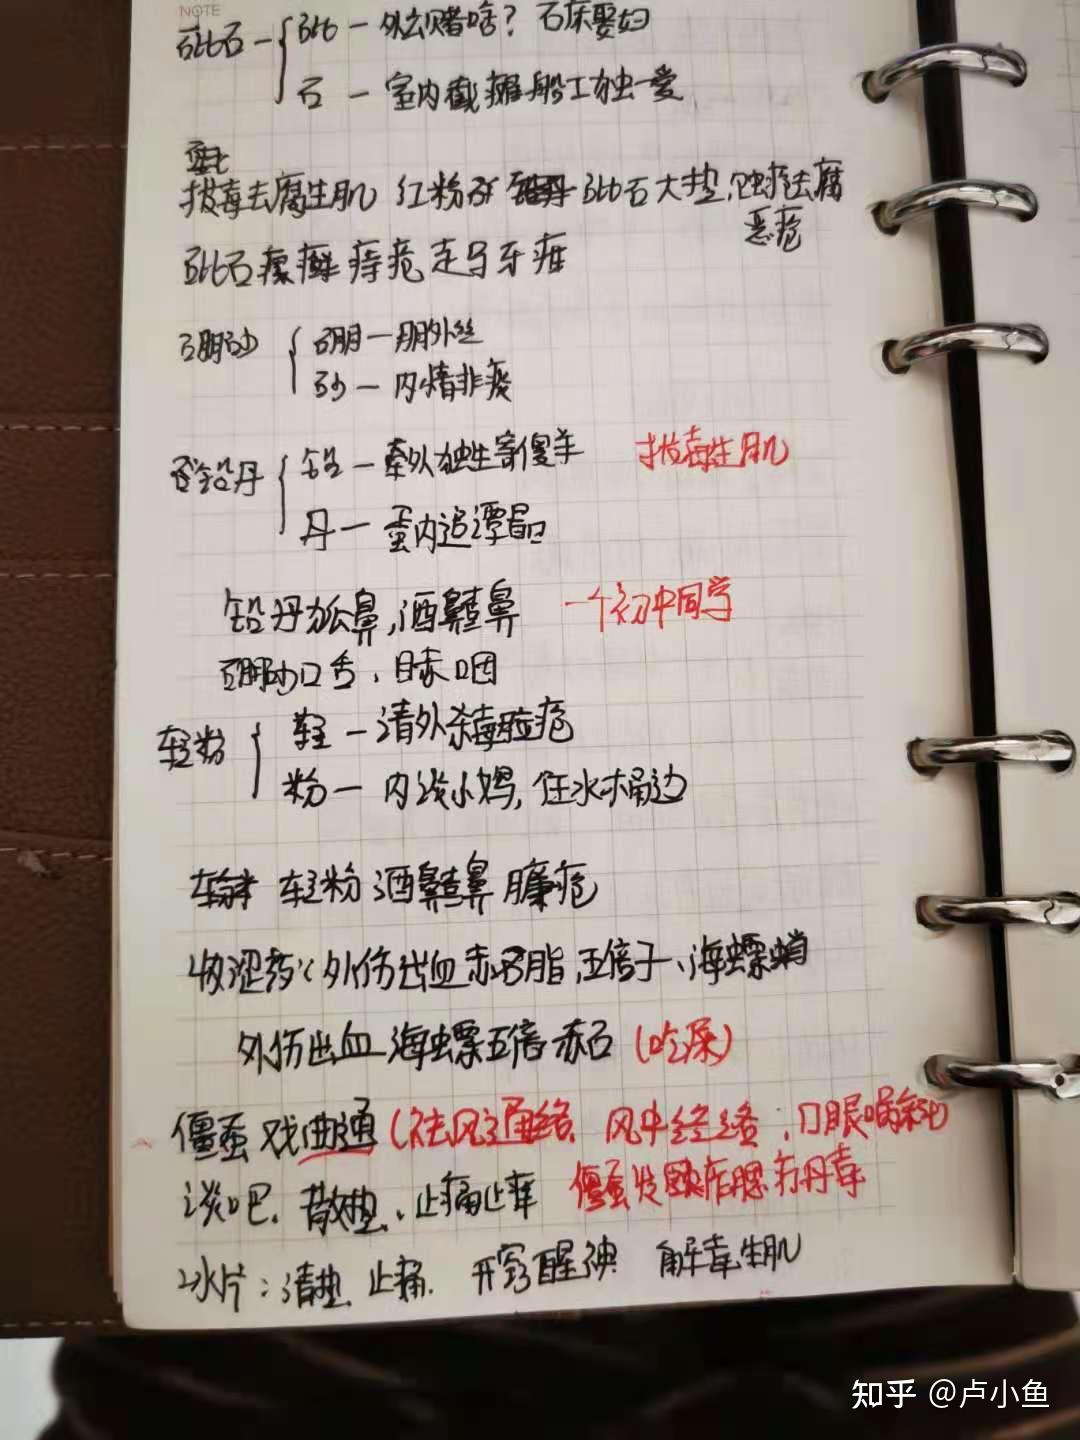 NOTE
砒石 - 砒 - 外去赌啥? 石床娶妇
石 - 室内截 船工独一爱
拔毒去腐生肌 红粉 砒石大 蚀疮去腐
恶疮
砒石瘰癣痔疮走马牙疳
硼砂 硼 - 朋外丝
砂 - 内情非痰
铅丹 铅 - 牵外独生寄傻羊 拔毒生肌
丹 - 蛋内追谭冒
铅丹狐鼻,酒齄鼻 一个初中同学
硼砂口舌、目赤咽
轻粉 轻 - 清外杀毒脸疮
粉 - 内找小妈,住水桶边
轻粉酒齄鼻臁疮
收涩药:外伤出血赤石脂,五倍子、海螵蛸
外伤出血海螵五倍赤石(吃屎)
僵蚕 戏曲通(祛风通络 风中经络,口眼喎斜)
谈吧、散热、止痛止痒 僵蚕发颐疟腮疔丹毒
冰片:清热 止痛. 开窍醒神 解毒生肌
知乎 @卢小鱼